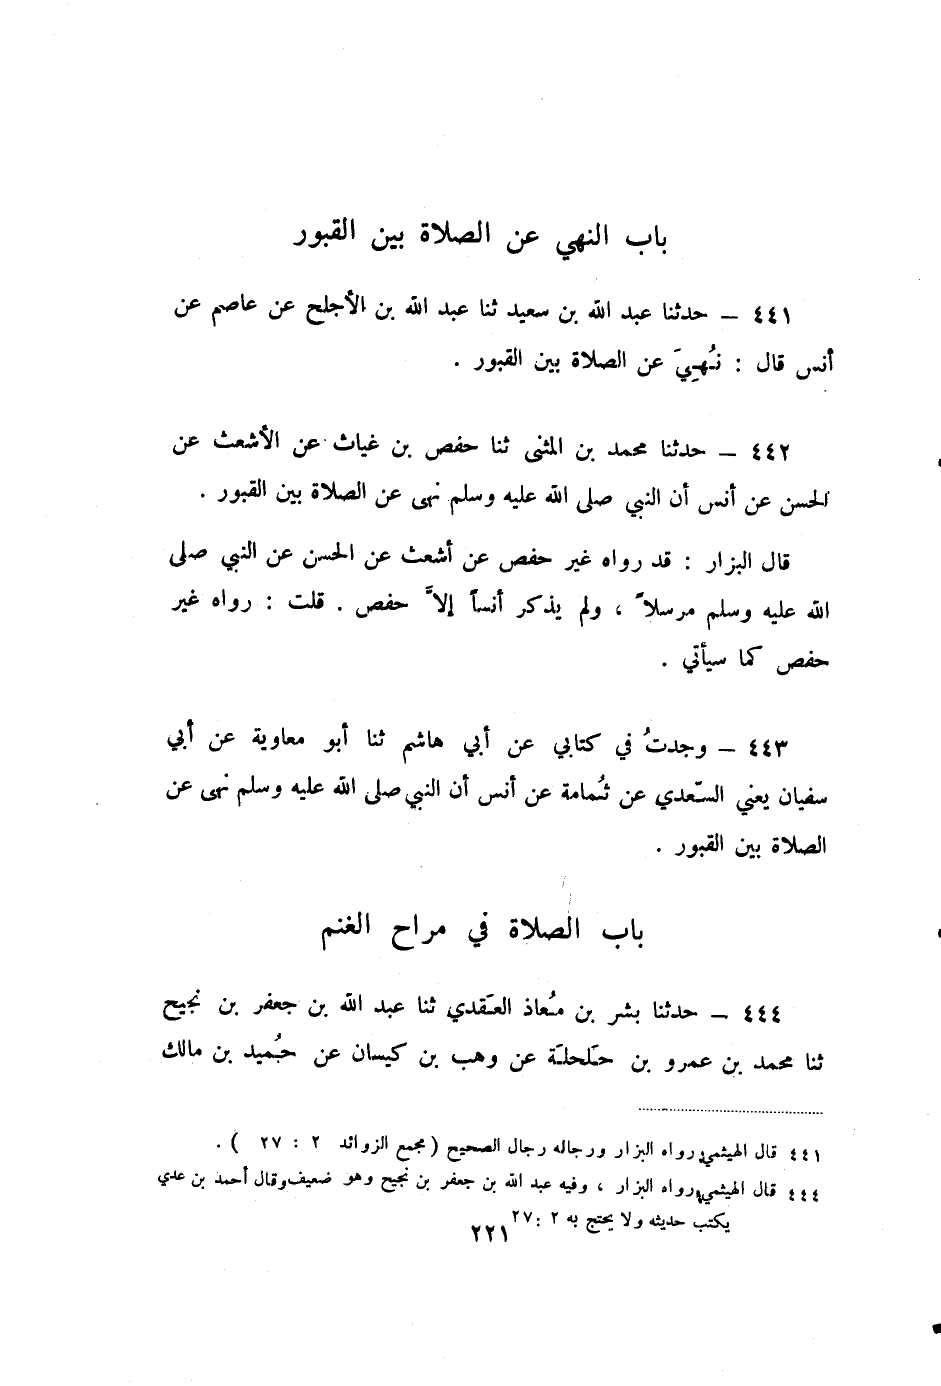 باب النهي عن الصلاة بين القبور
٤٤١ – حدثنا عبد الله بن سعيد ثنا عبد الله بن الأجلح عن عاصم عن
أنس قال : نُهِيَ عن الصلاة بين القبور .
٤٤٢ – حدثنا محمد بن المثنى ثنا حفص بن غياث عن الأشعث عن
الحسن عن أنس أن النبي صلى الله عليه وسلم نهى عن الصلاة بين القبور .
قال البزار : قد رواه غير حفص عن أشعث عن الحسن عن النبي صلى
الله عليه وسلم مرسلاً ، ولم يذكر أنساً إلاَّ حفص . قلت : رواه غير
حفص كما سيأتي .
٤٤٣ – وجدتُ في كتابي عن أبي هاشم ثنا أبو معاوية عن أبي
سفيان يعني السّعدي عن ثُمامة عن أنس أن النبي صلى الله عليه وسلم نهى عن
الصلاة بين القبور .
باب الصلاة في مراح الغنم
٤٤٤ – حدثنا بشر بن مُعاذ العَقدي ثنا عبد الله بن جعفر بن نجيح
ثنا محمد بن عمرو بن حَلحلَة عن وهب بن كيسان عن حُميد بن مالك
٤٤١ قال الهيثمي رواه البزار ورجاله رجال الصحيح ( مجمع الزوائد ٢ : ٢٧ ) .
٤٤٤ قال الهيثمي رواه البزار ، وفيه عبد الله بن جعفر بن نجيح وهو ضعيف وقال أحمد بن عدي
يكتب حديثه ولا يحتج به ٢ : ٢٧
٢٢١